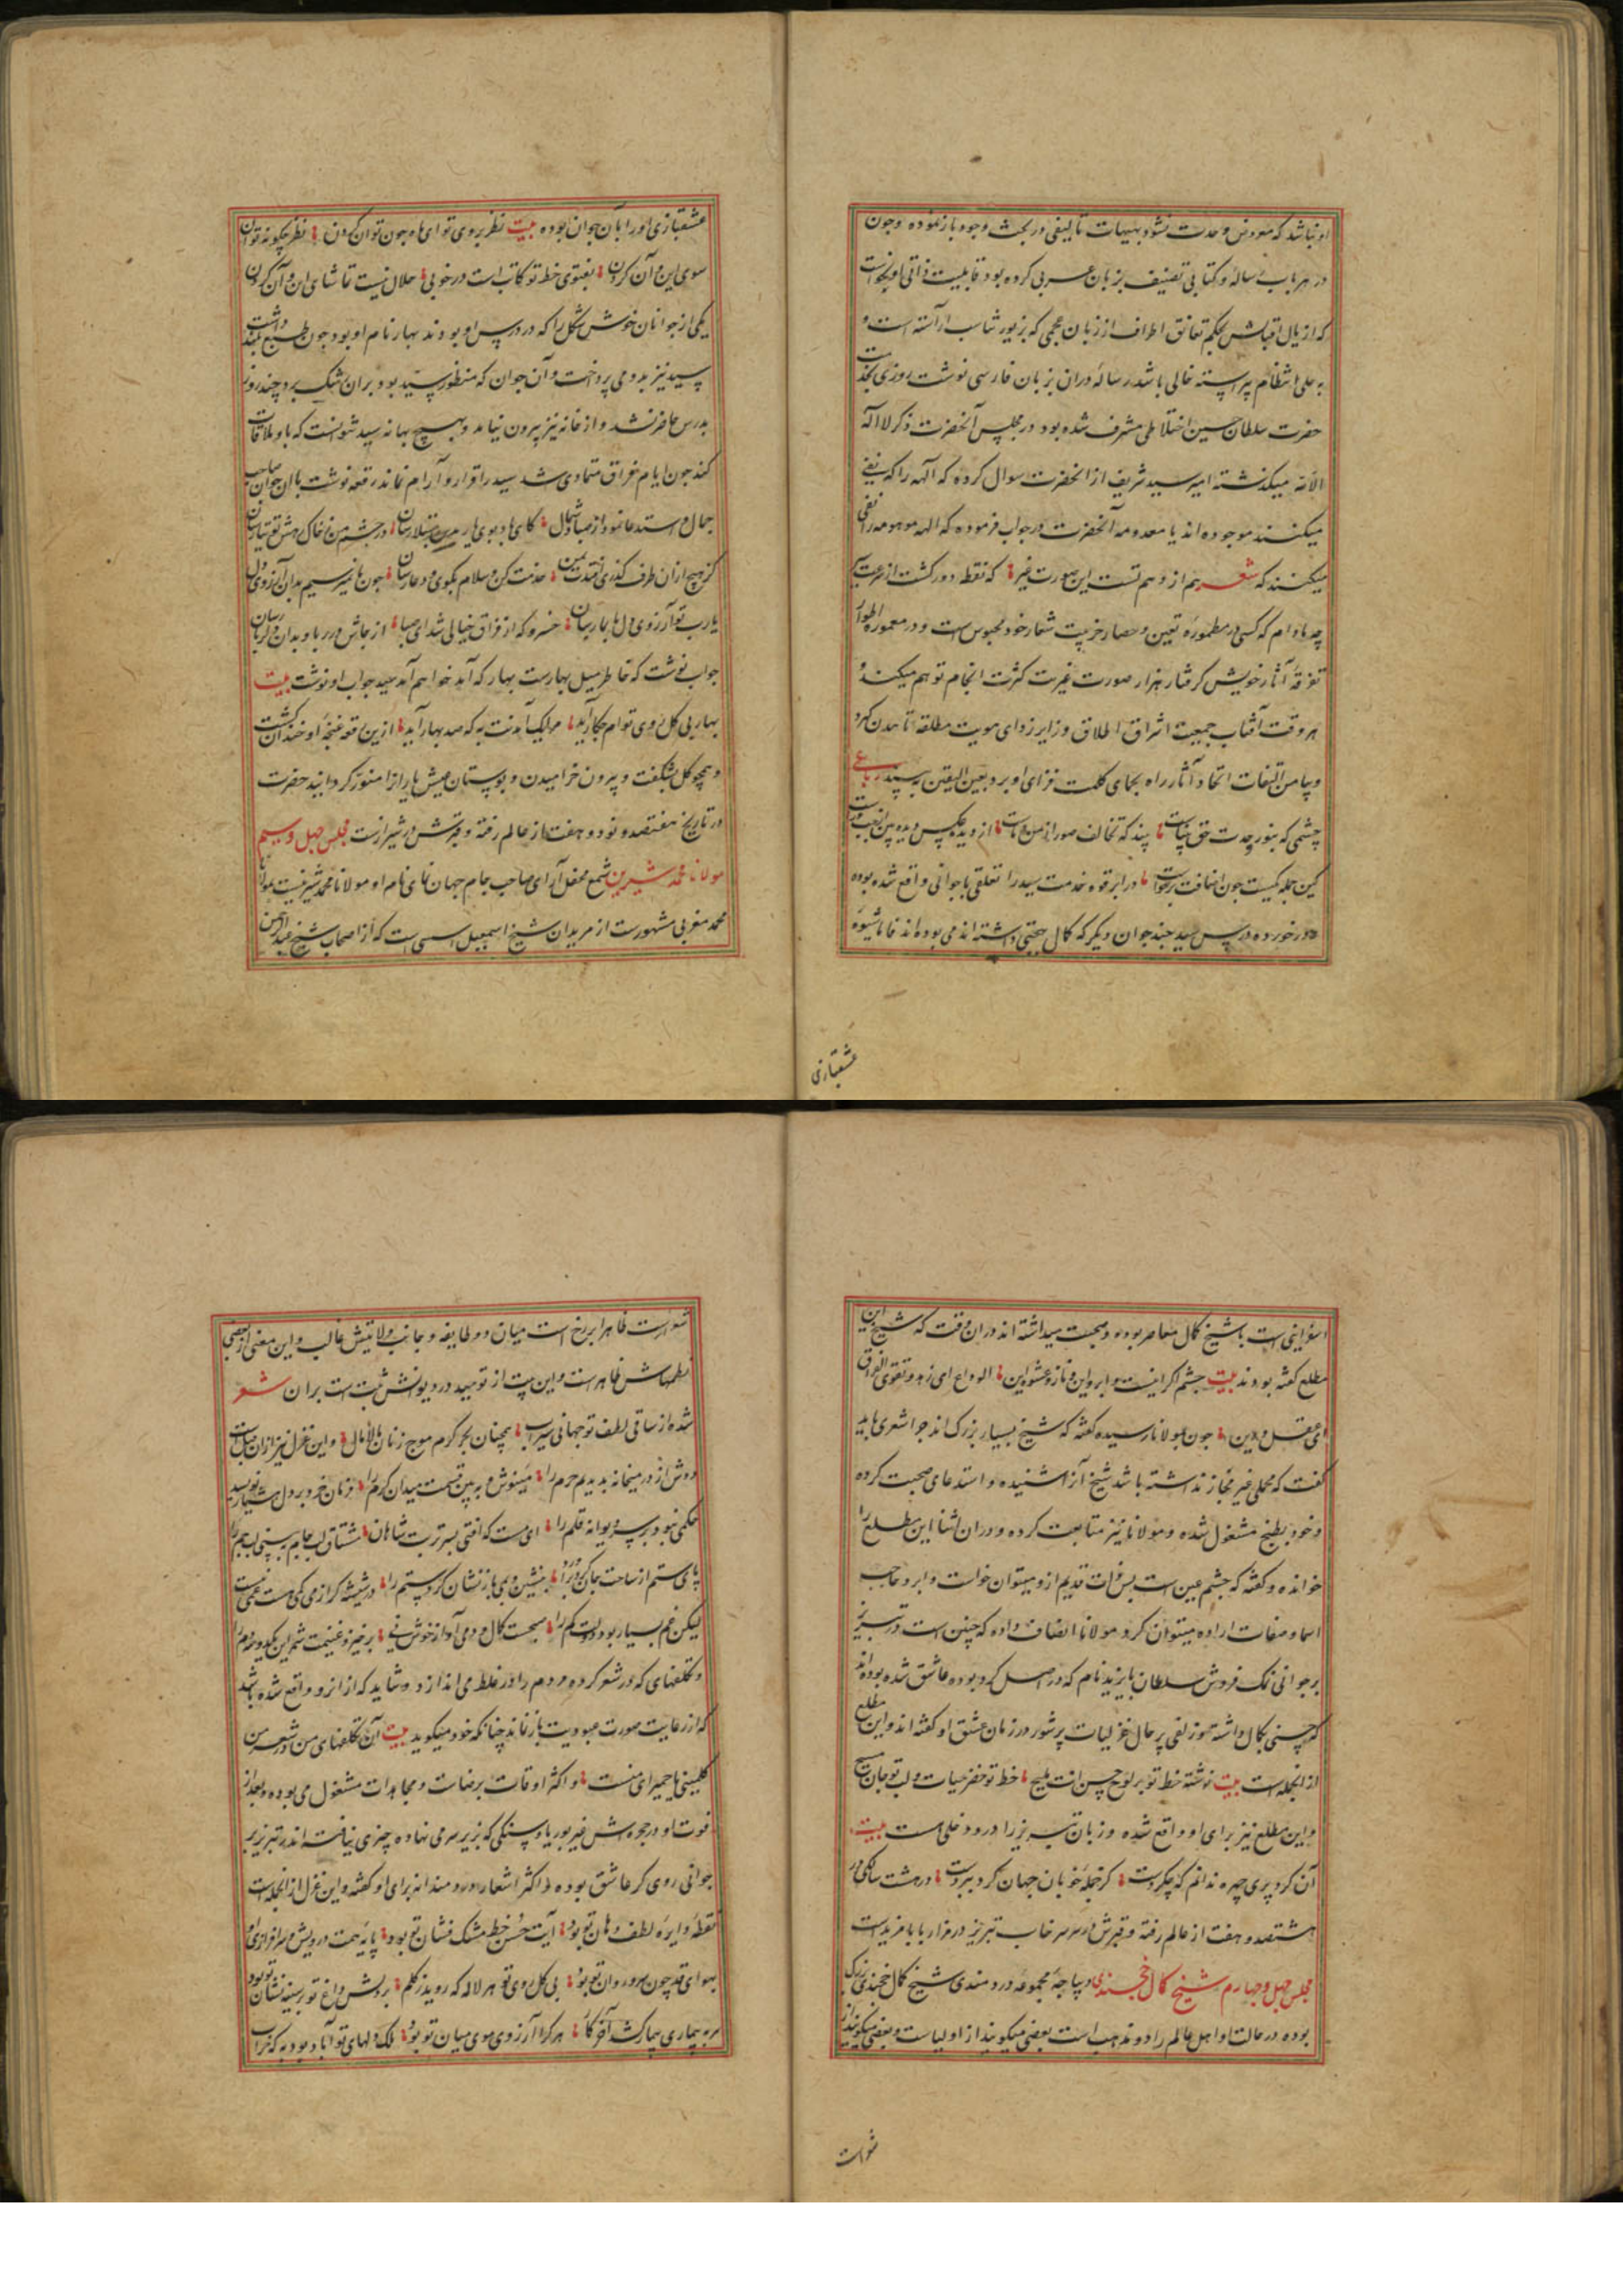 او نباشد که معروض وحدت نشود بتنبیهات تألیفی در بحث وجود باز نموده و چون
در هر باب رساله و کتابی تصنیف بزبان عربی کرده بود قابلیت ذاتی او نخواست
که اذیال اقبالش بحکم تعانق اطراف از زبان عجمی که بزیور شباب آراسته است و
به حلی انتظام پیراسته خالی باشد رساله در آن بزبان فارسی نوشت روزی بخدمت
حضرت سلطان حسین اخلاطی مشرف شده بود در مجلس آنحضرت ذکر لا اله
الا الله میگذشته امیر سید شریف از آنحضرت سوال کرده که آلهه را که نفی
میکنند موجوده اند یا معدومه آنحضرت در جواب فرموده که الهه موهومه را نفی
میکنند که شعر هم از وهم تست این صورت غیر که نقطه دور گشت از سرعت سیر
چه مادام که کسی در مطموره تعین و حصار خزیت شعار خود محبوس است و در معموره اطوار
تفرقه آثار خویش گرفتار هزار صورت غیریت کثرت انجام توهم میکند و
هر وقت آفتاب جمعیت اشراق اطلاق از زوایای هویت مطلقه تا بدن گیرد
و پیامن التفات اتحاد آثار راه بجای ظلمت فزای او برد بعین الیقین به بیند رباعی
چشمی که بنور وحدت حق بیناست بیند که تخالف صور از من و ماست از دیده عکس دیده بین
کین جمله یکیست چون اضافت برخاست در ابرقوه خدمت سید را تعلقی با جوانی واقع شده بوده
در خورد و در درس سید چند جوان دیگر که کمال حسنی داشته اند می بوده اند فاما شیوه
عشقبازی
عشقبازی او را با آن جوان بوده بیت نظر بروی تو ای ماه چون توان کردن نظر چگونه توان
سوی این و آن کردن بفتوی خط تو کاتب است در خوبی حلال نیست تماشای این و آن کردن
یکی از جوانان خوش شکل را که در درس او بودند بهار نام او بود چون طبع بلند داشت
سید نیز بدو می پرداخت و آن جوان که منظور سید بود بر آن رشک برد چند روز
بدرس حاضر نشد و از خانه نیز بیرون نیامد و بهیچ بهانه سید نتوانست که با او ملاقات
کند چون ایام فراق متمادی شد سید را قرار و آرام نماند رقعه نوشت باان جوان صاحب
جمال و استدعا نمود از صبا و شمال کای باد بوی یار بدین مبتلا رسان در چشم من ز خاک رهش توتیا رسان
گر هیچ از آن طرف گذری افتدت ببین خدمت کن و سلام بگوی و دعا رسان چون ما نمیرسیم بدان آرزوی دل
یارب تو آرزوی دل ما بما رسان خسرو که از فراق خیالی شد ای صبا از جاش در ربا و بدان دلربا رسان
جواب نوشت که خاطر میل بهارست بهار که آید خواهم آمد سید جواب او نوشت بیت
بهار بی گل روی توام چکار آید مرا یک آمدنت به که صد بهار آید ازین رقعه غنچه او خندان گشت
و همچو گل بشگفت و بیرون خرامیدن و بوستان عیش یاران را منور گردانید حضرت
در تاریخ هفتصد و نود و هفت از عالم رفته و قبرش در شیراز است مجلس چهل و سیم
مولانا محمد شیرین شمع محفل آرای صاحب جام جهان نمای نام او مولانا محمد شیرینست مولانا
محمد مغربی مشهورست از مریدان شیخ اسمعیل سیسی است که از اصحاب شیخ عبدالرحمن
اسفراینی است با شیخ کمال معاصر بوده و صحبت میداشته اند در آن وقت که شیخ این
مطلع گفته بودند بیت چشم اگر اینست و ابرو این و ناز و عشوه این الوداع ای زهد و تقوی الفراق
ای عقل و دین چون بمولانا رسیده گفته که شیخ بسیار بزرگ اند چرا شعری باید
گفت که محملی غیر مجاز نداشته باشد شیخ آنرا شنیده و استدعای صحبت کرده
و خود بطبخ مشغول شده و مولانا نیز متابعت کرده و در آن اثنا این مطلع را
خوانده و گفته که چشم عین است پس ذات قدیم ازو میتوان خواست و ابرو حاجب
اسما و صفات اراده میتوان کرد و مولانا انصاف داده که چنین است در تبریز
بر جوانی نمک فروش سلطان بایزید نام که در اصل کرد بوده عاشق شده بوده اند
که حسنی بکمال داشته و زلفی پر حال غزلیات پرشور در زمان عشق او گفته اند و این مطلع
از آنجمله است بیت نوشته خط تو بر لوح حسن انت ملیح خط تو خضر حیات و لب تو جان مسیح
و این مطلع نیز برای او واقع شده و زبان تبریز را درو دخلی است بیت
آن کرد پری چهره ندانم که چه کردست کز جمله خوبان جهان گرد ببردست در هشت سالگی در
هشتصد و هفت از عالم رفته و قبرش در سرخاب تبریز در مزار بابا مزیدست
مجلس چهل و چهارم شیخ کمال خجندی دیباچه مجموعه دردمندی شیخ کمال خجندی بزرگ
بوده در حالت او اهل عالم را دو مذهب است بعضی میگویند از اولیاست و بعضی میگویند از
شعراست
شعراست ظاهرا برزخ است میان دو طایفه و جانب ولایتش غالب و این معنی از بعضی
نظمهاش ظاهر است و این بیت از توحید در دیوانش ثبت است بر آن شعر
شده از ساقی لطف تو جهانی سیراب همچنان بحر کرم موج زنان مالامال و این غزل نیز از آن جمله است
دوش از در میخانه بدیدیم حرم را می نوش و ببین قسمت میدان کرم را فرمان خرد بر دل هشیار نویسند
حکمی نبود بر سر دیوانه قلم را ای مست که افتی بسر تربت شاهان مشتاق لب جام ببینی لب جم را
پای ستم از ساحت جان گرد بنشین و می باز نشان گرد ستم را در شیشه گر از می کمی هست غمی نیست
لیکن غم بسیار بود دولت کم را صحبت کمال و دمی آواز خوش نی برخیز و غنیمت شمر این یکدو سه دم را
و تکلفهای که در شعر کرده مردم را در غلط می اندازد و شاید که از آنرو واقع شده باشد
که از رعایت صورت عبودیت باز نماند چنانکه خود میگوید بیت آن تکلفهای من در شعر من
کلمینی یا حمیرای منست و اکثر اوقات برضات و مجاهدات مشغول می بوده و بعد از
فوت او در حجره اش غیر بوریا و سنگی که بزیر سر می نهاده چیزی نیافته اند در تبریز بر
جوانی روی گر عاشق بوده و اکثر اشعار دردمندانه برای او گفته و این غزل از آنجمله است
نقطه دایره لطف دهان تو بود آیت حسن خط مشک فشان تو بود پایه همت درویش و سرافرازی او
بهوای قد چون سرو روان تو بود بی گل روی تو هر لاله که روید ز گلم بر دلش داغ تو بر سینه نشان تو بود
سر به بیماری باریک کشد آخر کار هر کرا آرزوی موی میان تو بود ملک دلهای تو آباد بود به که خراب